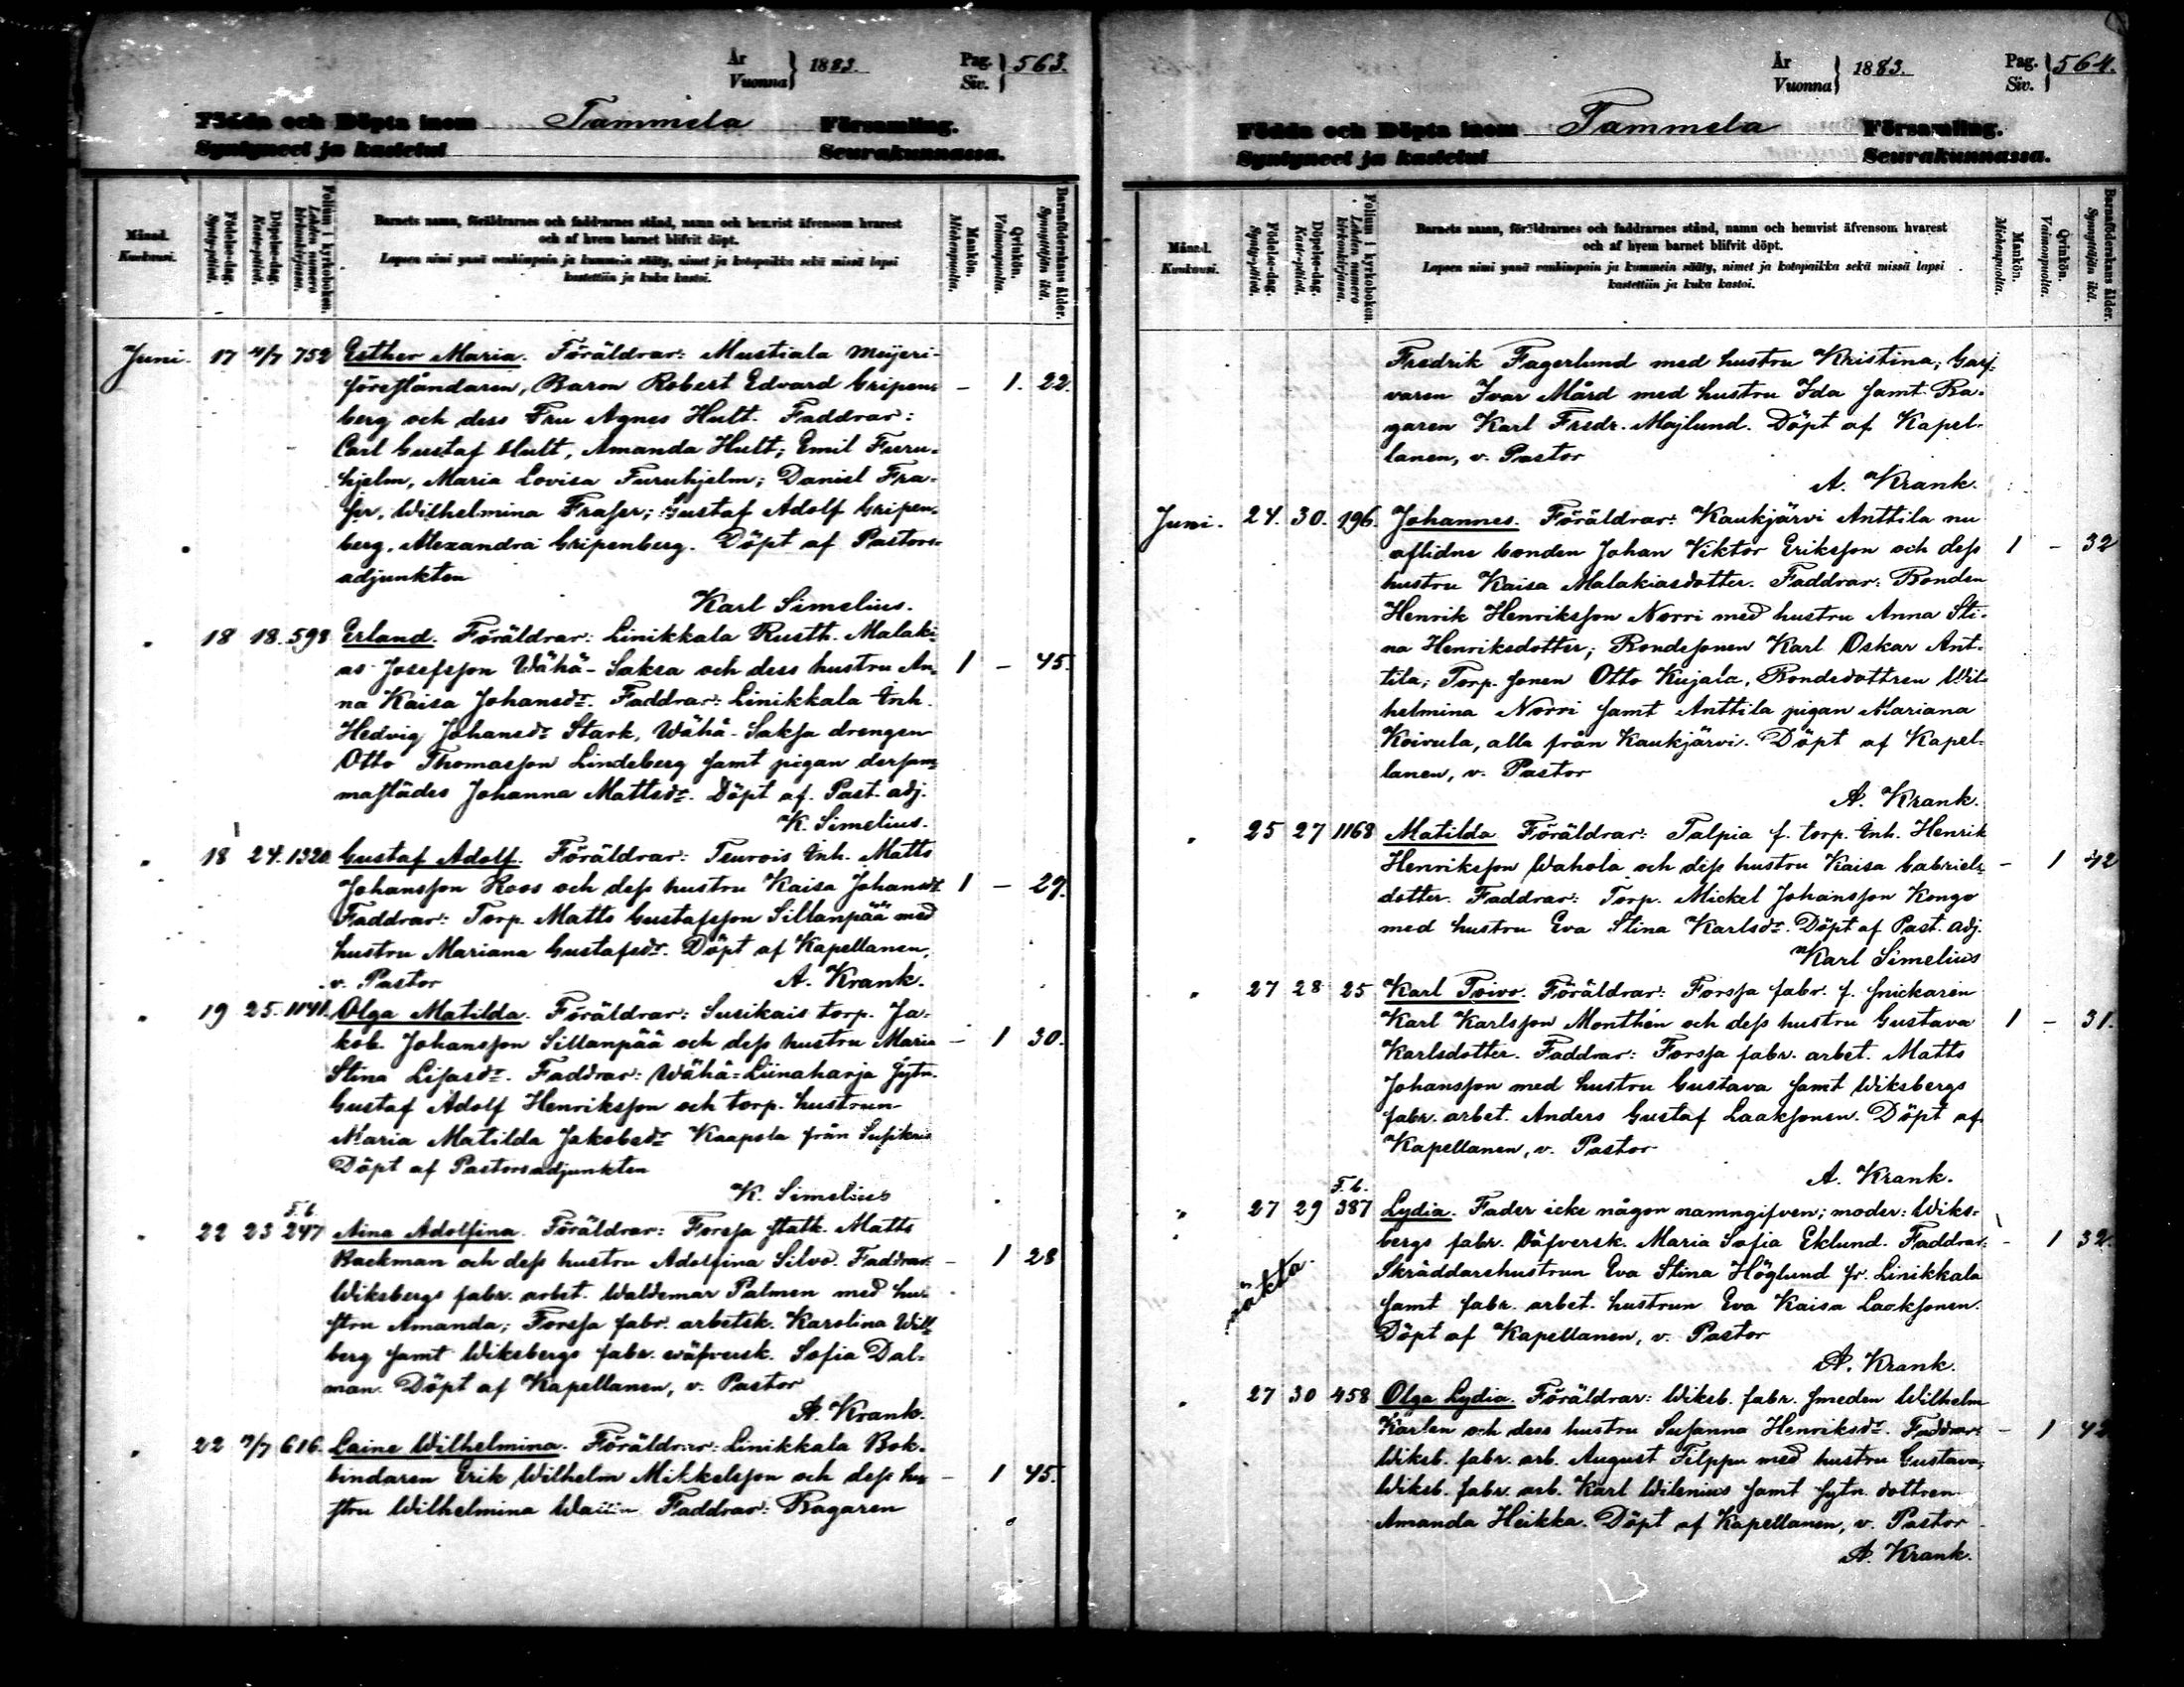 År
Vuonna } 1883. Pag.
Siv. } 563.
Födda och Döpta inom Tammela Församling.
Syntyneet ja kastetut Seurakunnassa.
Månad.
Kuukausi.
Födelse-dag.
Synty-päivä.
Döpelse-dag.
Kaste-päivä.
Folium i kyrkoboken.
Lehden numero kirkonkirjassa.
Barnets namn, föräldrarnes och faddrarnes stånd, namn och hemvist äfvensom hvarest
och af hvem barnet blifvit döpt.
Lapsen nimi ynnä vanhimpain ja kummein sääty, nimet ja kotopaikka sekä missä lapsi
kastettiin ja kuka kastoi.
Mankön.
Miehenpuolta.
Qvinkön.
Vaimonpuolta.
Barnaföderskans ålder.
Synnyttäjän ikä.
Juni. 17 /7 752 Esther Maria. Föräldrar: Mustiala Meijeri-
föreståndaren, Baron Robert Edvard Gripen- – 1. 22.
berg och dess Fru Agnes Hult. Faddrar:
Carl Gustaf Hult, Amanda Hult; Emil Furu-
hjelm, Maria Lovisa Furuhjelm; Daniel Fra-
ser, Wilhelmina Fraser; Gustaf Adolf Gripen-
berg, Alexandra Gripenberg. Döpt af Pastors-
adjunkten
Karl Simelius.
" 18 18. 598 Erland. Föräldrar: Linikkala Rusth. Malaki-
as Josefsson Wähä-Saksa och dess hustru An- 1 – 45.
na Kaisa Johansdr. Faddrar: Linikkala Inh.
Hedvig Johansdr Stark, Wähä-Saksa drengen
Otto Thomasson Lindeberg samt pigan dersam-
mastädes Johanna Mattsdr. Döpt af Past. adj.
K. Simelius.
" 18 24. 1320. Gustaf Adolf. Föräldrar: Teurois Inh. Matts
Johansson Roos och dess hustru Kaisa Johansdr 1 – 29.
Faddrar: Torp. Matts Gustafsson Sillanpää med
hustru Mariana Gustafsdr. Döpt af Kapellanen,
v. Pastor A. Krank.
" 19 25. 1141. Olga Matilda. Föräldrar: Susikais torp. Ja-
kob Johansson Sillanpää och dess hustru Maria – 1 30.
Stina Lisasdr. Faddrar: Wähä-Liinaharja Sytn.
Gustaf Adolf Henriksson och torp. hustrun
Maria Matilda Jakobsdr Kaapola från Susikais
Döpt af Pastorsadjunkten
K. Simelius
F.b.
" 22 23 247 Aina Adolfina. Föräldrar: Forssa statk. Matts
Backman och dess hustru Adolfina Silvo. Faddrar: – 1 28
Wiksbergs fabr. arbet. Waldemar Palmen med hu-
stru Amanda; Forssa fabr. arbetsk. Karolina Will-
berg samt Wiksbergs fabr. väfversk. Sofia Dal-
man. Döpt af Kapellanen, v. Pastor
A. Krank.
" 22 /7 616. Laine Wilhelmina. Föräldrar: Linikkala Bok-
bindaren Erik Wilhelm Mikkelsson och dess hu- – 1 45.
stru Wilhelmina Faddrar: Bagaren
År
Vuonna } 1883. Pag.
Siv. } 564.
Födda och Döpta inom Tammela Församling.
Syntyneet ja kastetut Seurakunnassa.
Månad.
Kuukausi.
Födelse-dag.
Synty-päivä.
Döpelse-dag.
Kaste-päivä.
Folium i kyrkoboken.
Lehden numero kirkonkirjassa.
Barnets namn, föräldrarnes och faddrarnes stånd, namn och hemvist äfvensom hvarest
och af hvem barnet blifvit döpt.
Lapsen nimi ynnä vanhimpain ja kummein sääty, nimet ja kotopaikka sekä missä lapsi
kastettiin ja kuka kastoi.
Mankön.
Miehenpuolta.
Qvinkön.
Vaimonpuolta.
Barnaföderskans ålder.
Synnyttäjän ikä.
Fredrik Fagerlund med hustru Kristina, Garf-
varen Ivar Mård med hustru Ida samt Ba-
garen Karl Fredr. Majlund. Döpt af Kapel-
lanen, v. Pastor
A. Krank.
Juni. 24. 30. 196. Johannes. Föräldrar: Kaukjärvi Anttila nu
aflidne bonden Johan Viktor Eriksson och dess 1 – 32
hustru Kaisa Malakiasdotter. Faddrar: Bonden
Henrik Henriksson Norri med hustru Anna Sti-
na Henriksdotter; Bondesonen Karl Oskar Ant-
tila; Torp. sonen Otto Kujala, Bondedottren Wil-
helmina Norri samt Anttila pigan Mariana
Koivula, alla från Kaukjärvi. Döpt af Kapel-
lanen, v. Pastor
A. Krank.
" 25 27 1168 Matilda Föräldrar: Talpia f. torp. Inh. Henrik
Henriksson Wahola och dess hustru Kaisa Gabriels- – 1 42
dotter. Faddrar: Torp. Mickel Johansson Kongo
med hustru Eva Stina Karlsdr. Döpt af Past. adj.
Karl Simelius
" 27 28 25 Karl Toivo. Föräldrar: Forssa fabr. f. snickaren
Karl Karlsson Monthén och dess hustru Gustava 1 – 31.
Karlsdotter. Faddrar: Forssa fabr. arbet. Matts
Johansson med hustru Gustava samt Wiksbergs
fabr. arbet. Anders Gustaf Laaksonen. Döpt af
Kapellanen, v. Pastor
A. Krank.
F.b.
" 27 29 387 Lydia. Fader icke någon namngifven; moder: Wiks-
bergs fabr. Väfversk. Maria Sofia Eklund. Faddrar: – 1 32.
oäkta.
Skräddarehustrun Eva Stina Höglund fr. Linikkala
samt fabr. arbet. hustrun Eva Kaisa Laaksonen.
Döpt af Kapellanen, v. Pastor
A. Krank.
" 27 30 458 Olga Lydia. Föräldrar: Wiksb. fabr. smeden Wilhelm
Karlen och dess hustru Susanna Henriksdr. Faddrar: – 1 42
Wiksb. fabr. arb. August Filppu med hustru Gustava;
Wiksb. fabr. arb. Karl Wilenius samt sytn. dottren
Amanda Heikka. Döpt af Kapellanen, v. Pastor
A. Krank.